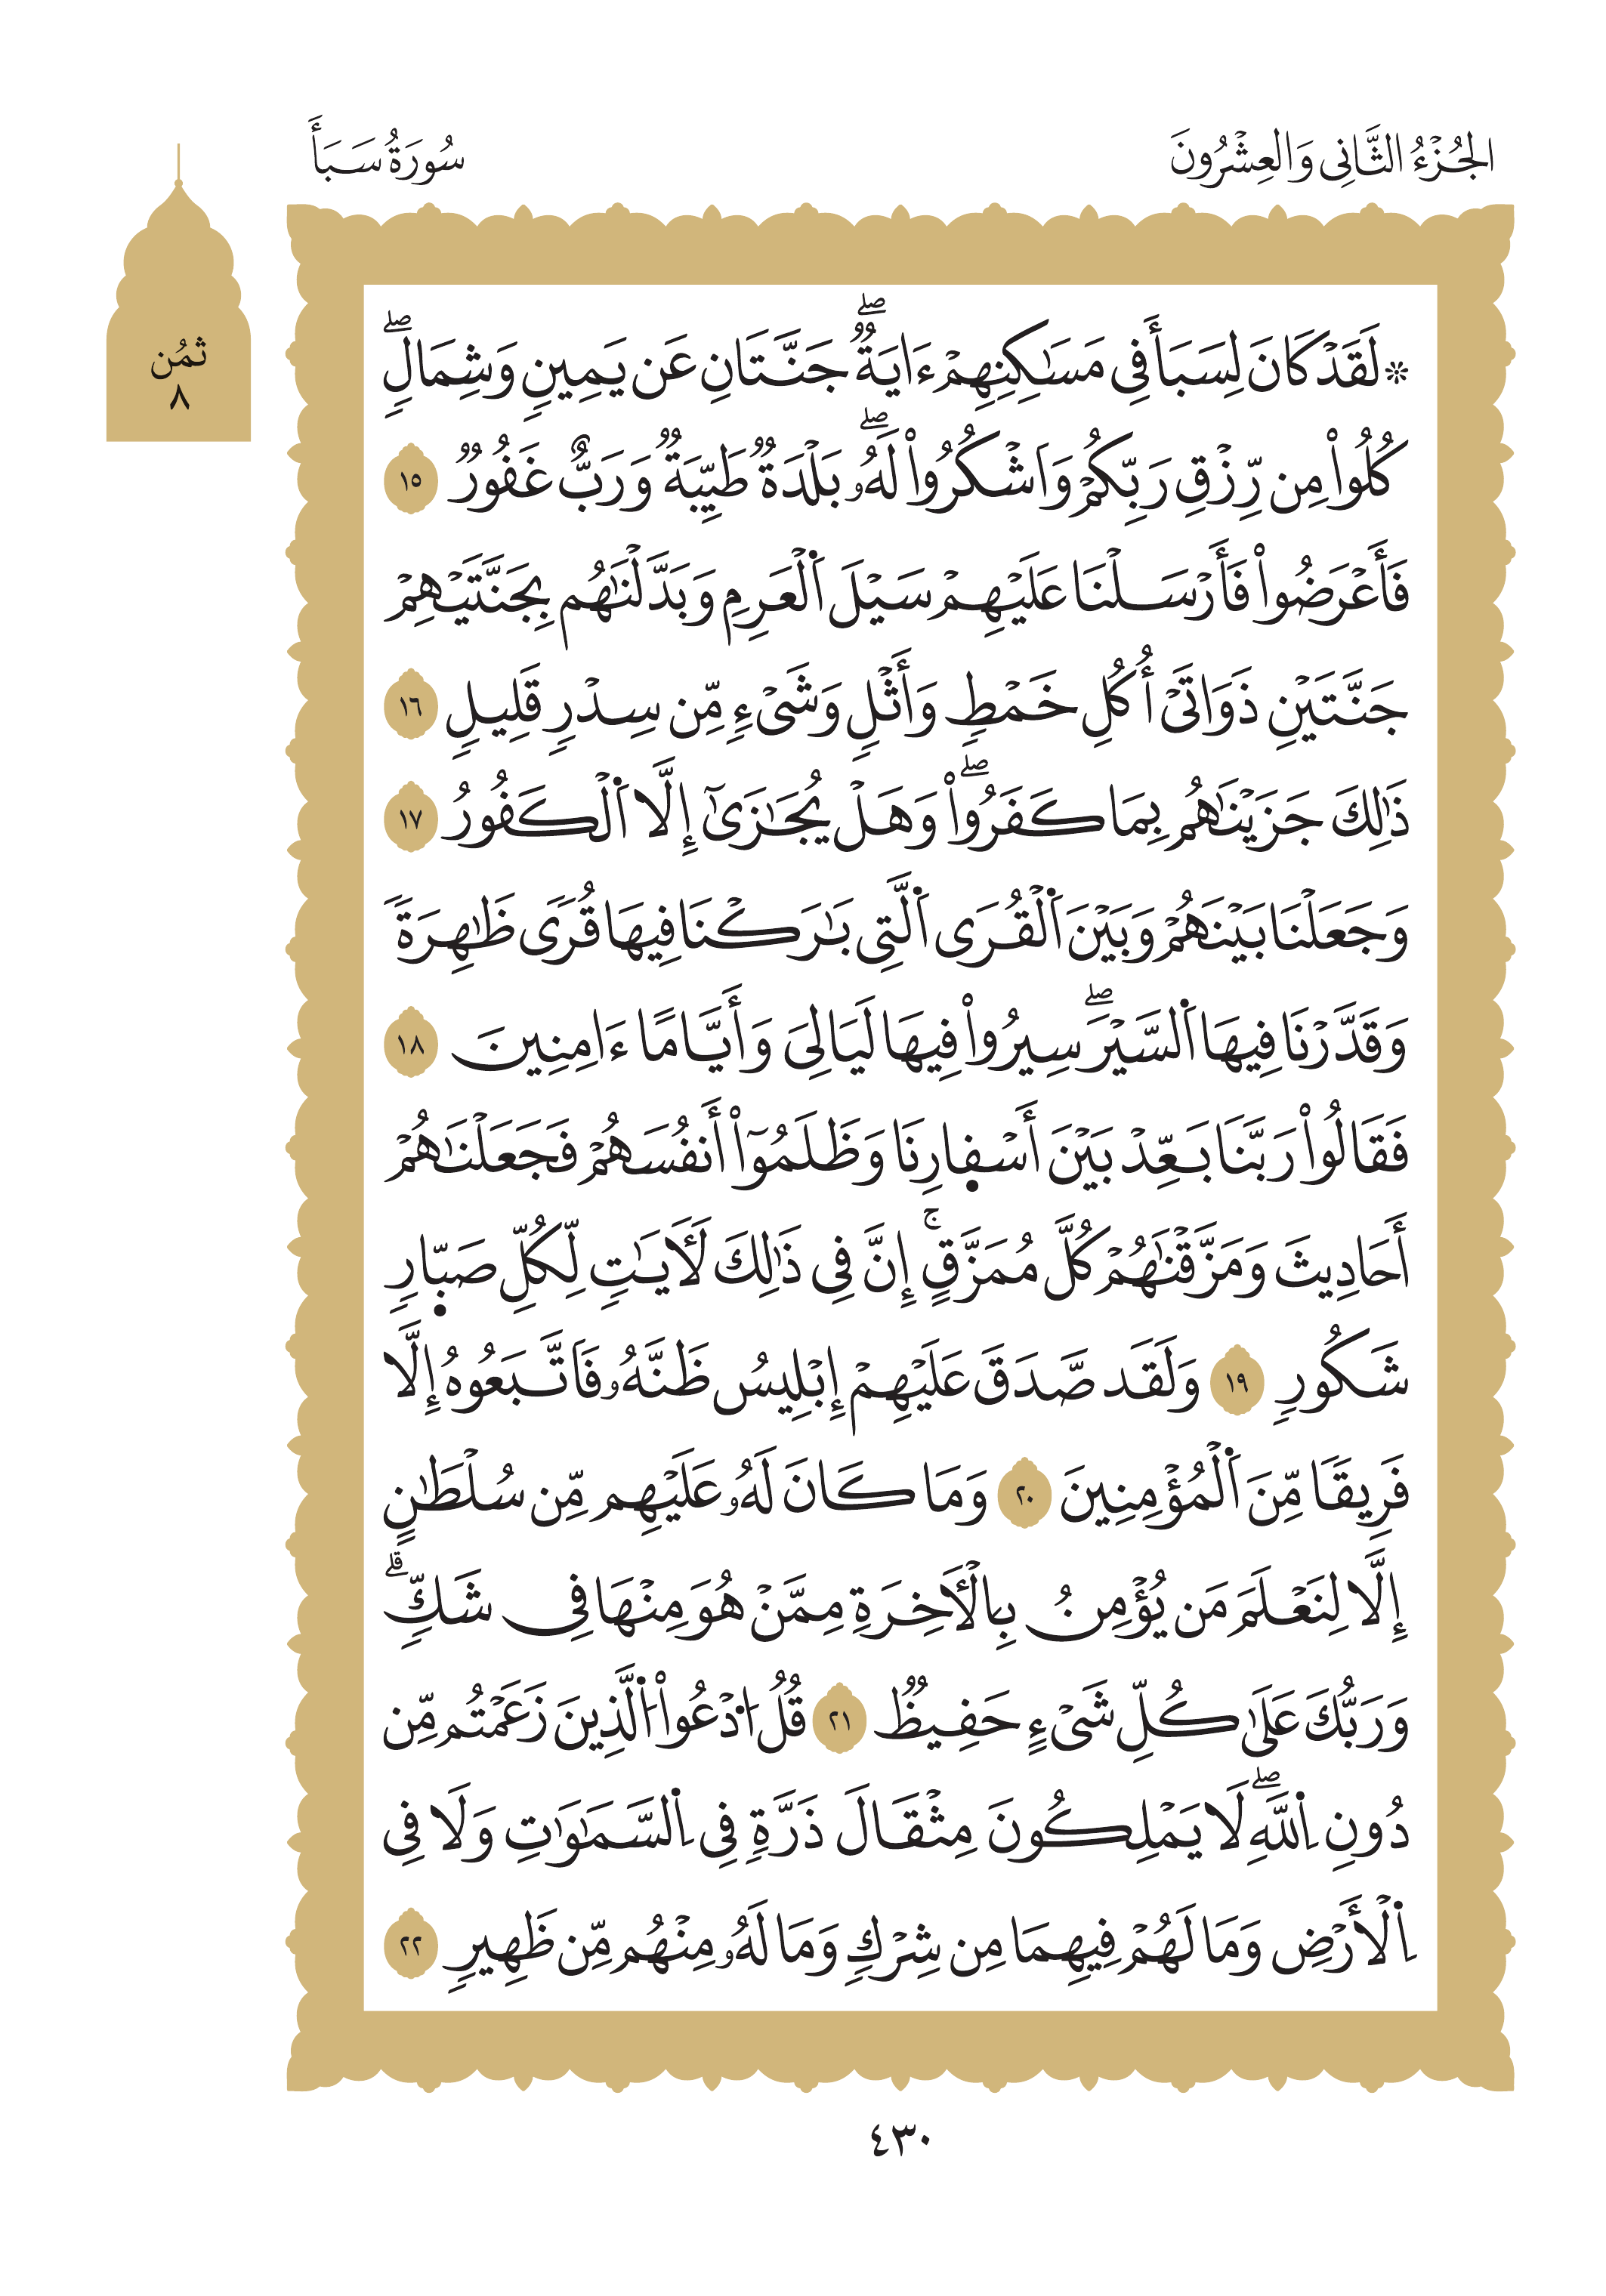 الجُزْءُ الثَّانِى وَالعِشْرُونَ
سُورَةُ سَبَأَ
ثمُن
٨
۞ لَقَدْ كَانَ لِسَبَأَ فِى مَسَٰكِنِهِمْ ءَايَةٞۖ جَنَّتَانِ عَن يَمِينٖ وَشِمَالٖۖ
كُلُواْ مِن رِّزْقِ رَبِّكُمْ وَاَشْكُرُواْ لَهُۥۖ بَلْدَةٞ طَيِّبَةٞ وَرَبٌّ غَفُورٞ ١٥
فَأَعْرَضُواْ فَأَرْسَلْنَا عَلَيْهِمْ سَيْلَ اَ۬لْعَرِمِ وَبَدَّلْنَٰهُم بِجَنَّتَيْهِمْ
جَنَّتَيْنِ ذَوَاتَىْ أُكُلِ خَمْطٖ وَأَثْلٖ وَشَىْءٖ مِّن سِدْرٖ قَلِيلٖ ١٦
ذَٰلِكَ جَزَيْنَٰهُم بِمَا كَفَرُواْۖ وَهَلْ يُجَٰزَىٰٓ إِلَّا اَ۬لْكَفُورُ ١٧
وَجَعَلْنَا بَيْنَهُمْ وَبَيْنَ اَ۬لْقُرَى اَ۬لَّتِى بَٰرَكْنَا فِيهَا قُرٗى ظَٰهِرَةٗ
وَقَدَّرْنَا فِيهَا اَ۬لسَّيْرَۖ سِيرُواْ فِيهَا لَيَالِىَ وَأَيَّامًا ءَامِنِينَ ١٨
فَقَالُواْ رَبَّنَا بَعِّدْ بَيْنَ أَسْفِ۪ارِنَا وَظَلَمُوٓاْ أَنفُسَهُمْ فَجَعَلْنَٰهُمْ
أَحَادِيثَ وَمَزَّقْنَٰهُمْ كُلَّ مُمَزَّقٍۚ إِنَّ فِى ذَٰلِكَ لَأَيَٰتٖ لِّكُلِّ صَبّ۪ارٖ
شَكُورٖ ١٩ وَلَقَد صَّدَقَ عَلَيْهِمْ إِبْلِيسُ ظَنَّهُۥ فَاَتَّبَعُوهُ إِلَّا
فَرِيقٗا مِّنَ اَ۬لْمُؤْمِنِينَ ٢٠ وَمَا كَانَ لَهُۥ عَلَيْهِم مِّن سُلْطَٰنٍ
إِلَّا لِنَعْلَمَ مَن يُؤْمِنُ بِالْأَخِرَةِ مِمَّنْ هُوَ مِنْهَا فِى شَكّٖۗ
وَرَبُّكَ عَلَىٰ كُلِّ شَىْءٍ حَفِيظٞ ٢١ قُلُ اُ۟دْعُواْ اُ۬لَّذِينَ زَعَمْتُم مِّن
دُونِ اِ۬للَّهِۖ لَا يَمْلِكُونَ مِثْقَالَ ذَرَّةٖ فِى اِ۬لسَّمَٰوَٰتِ وَلَا فِى
اِ۬لْأَرْضِ وَمَا لَهُمْ فِيهِمَا مِن شِرْكٖ وَمَا لَهُۥ مِنْهُم مِّن ظَهِيرٖ ٢٢
٤٣٠